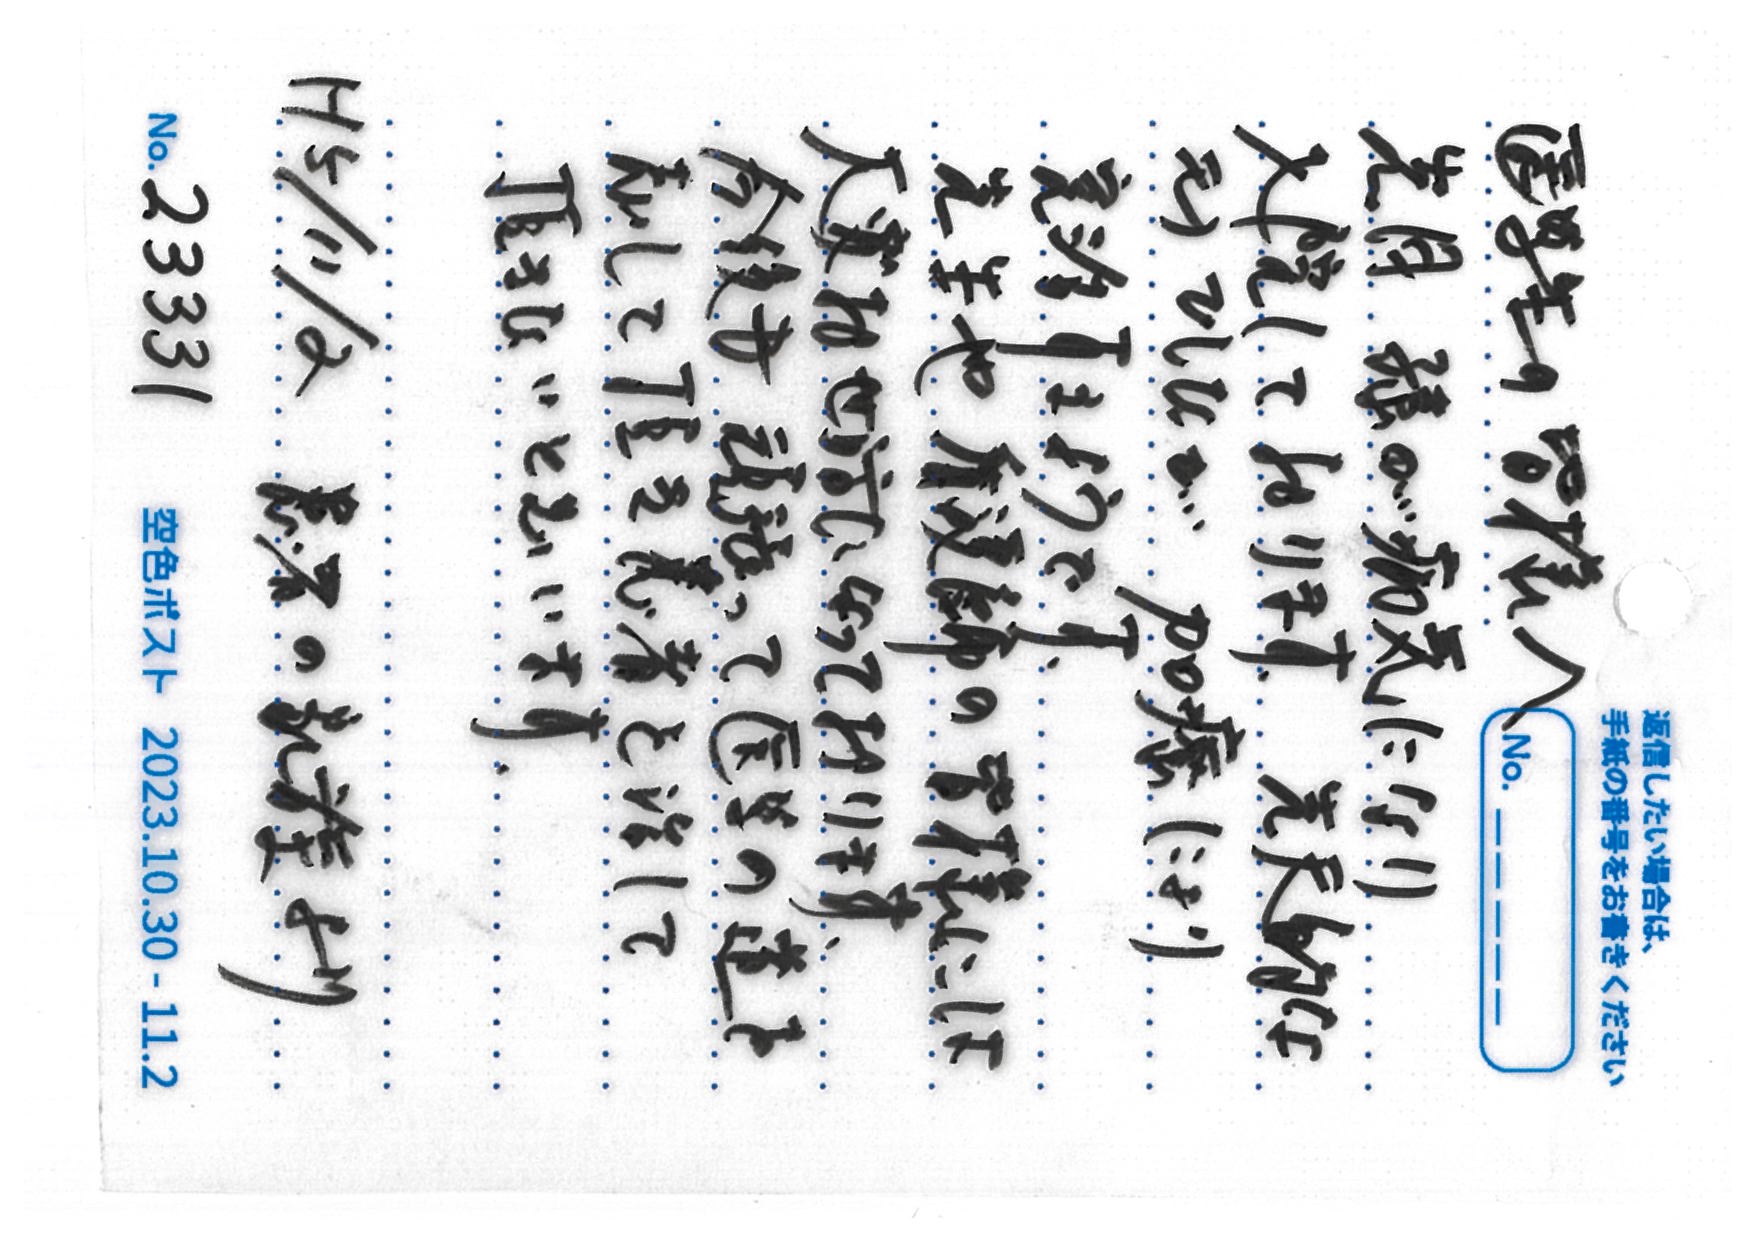 返信したい場合は、
手紙の番号をお書きください
No. _ _ _ _ _
医学生の皆様へ
先月 孫が病気になり
入院しております。先天的な
モノでしたが 加療により
完治するようです。
先生や看護師の皆様には
大変お世話になっております。
今後も頑張って医学の道を
志して頂き患者を治して
頂きたいと思います。
H5/11/2 患者の家族より
No. 23331
空色ポスト 2023.10.30 - 11.2